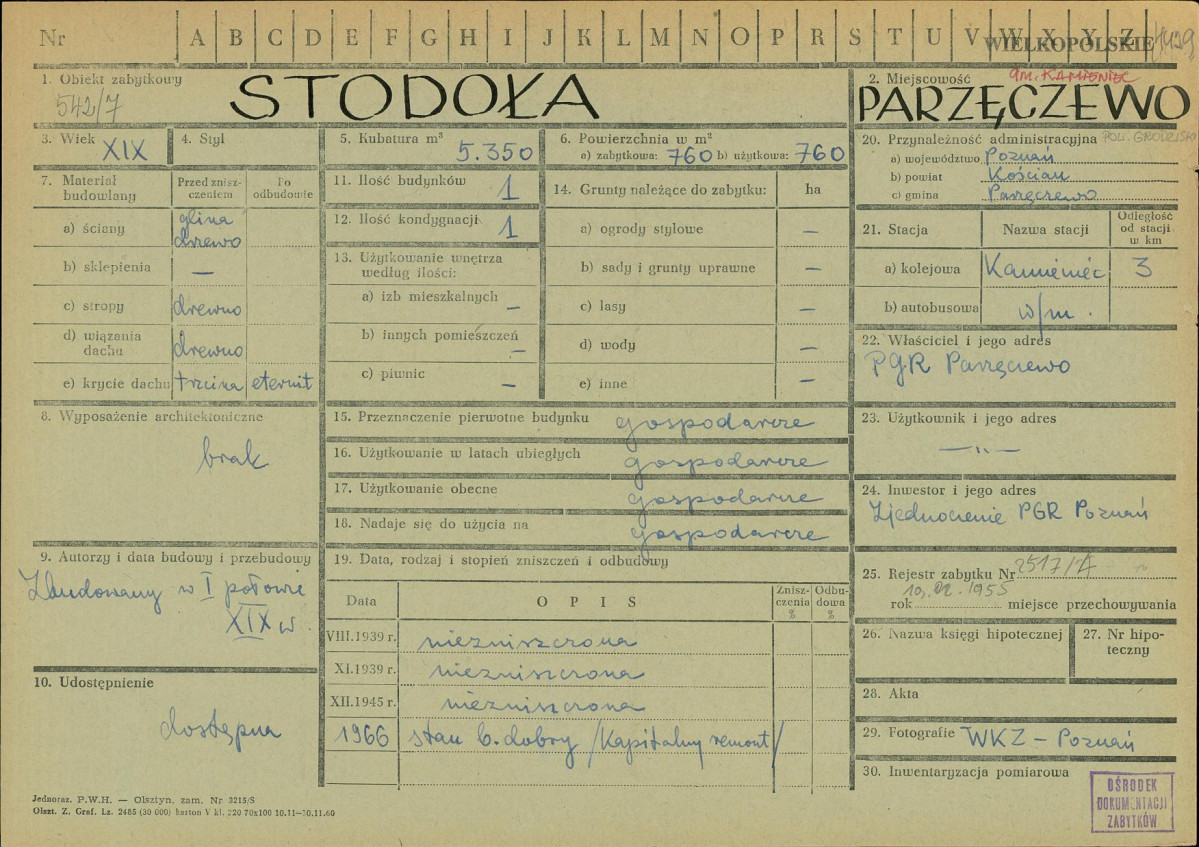 Nr A B C D E F G H I J K L M N O P R S T U V W X Y Z
WIELKOPOLSKIE
1. Obiekt zabytkowy
542/7
STODOŁA
2. Miejscowość
gm. KAMIENIEC
PARZĘCZEWO
3. Wiek XIX
4. Styl
5. Kubatura m³ 5.350
6. Powierzchnia w m²
a) zabytkowa: 760 b) użytkowa: 760
7. Materiał budowlany
Przed znisz-
czeniem
Po
odbudowie
a) ściany glina
drzewo
b) sklepienia —
c) stropy drewno
d) wiązania
dachu drewno
e) krycie dachu trzcina eternit
8. Wyposażenie architektoniczne
brak
9. Autorzy i data budowy i przebudowy
Zbudowany w I połowie
XIX w
10. Udostępnienie
dostępna
11. Ilość budynków 1
12. Ilość kondygnacji 1
13. Użytkowanie wnętrza
według ilości:
a) izb mieszkalnych —
b) innych pomieszczeń —
c) piwnic —
14. Grunty należące do zabytku: ha
a) ogrody stylowe —
b) sady i grunty uprawne —
c) lasy —
d) wody —
e) inne —
15. Przeznaczenie pierwotne budynku gospodarcze
16. Użytkowanie w latach ubiegłych gospodarcze
17. Użytkowanie obecne gospodarcze
18. Nadaje się do użycia na gospodarcze
19. Data, rodzaj i stopień zniszczeń i odbudowy
Data OPIS Znisz-
czenia
% Odbu-
dowa
%
VIII.1939 r. niezniszczona
XI.1939 r. niezniszczona
XII.1945 r. niezniszczona
1966 stan b. dobry /Kapitalny remont/
20. Przynależność administracyjna POW. GRODZISK
a) województwo Poznań
b) powiat Kościan
c) gmina Parzęczewo
21. Stacja Nazwa stacji Odległość
od stacji
w km
a) kolejowa Kamieniec 3
b) autobusowa w/m.
22. Właściciel i jego adres
PGR Parzęczewo
23. Użytkownik i jego adres
—"—
24. Inwestor i jego adres
Zjednoczenie PGR Poznań
25. Rejestr zabytku Nr 2517/A
10.02.1955
rok miejsce przechowywania
26. Nazwa księgi hipotecznej
27. Nr hipo-
teczny
28. Akta
29. Fotografie WKZ – Poznań
30. Inwentaryzacja pomiarowa
Jednoraz. P.W.H. — Olsztyn, zam. Nr 3215/S
Olszt. Z. Graf. Lz. 2485 (30 000) karton V kl. 220 70x100 10.11—30.11.60
OŚRODEK
DOKUMENTACJI
ZABYTKÓW